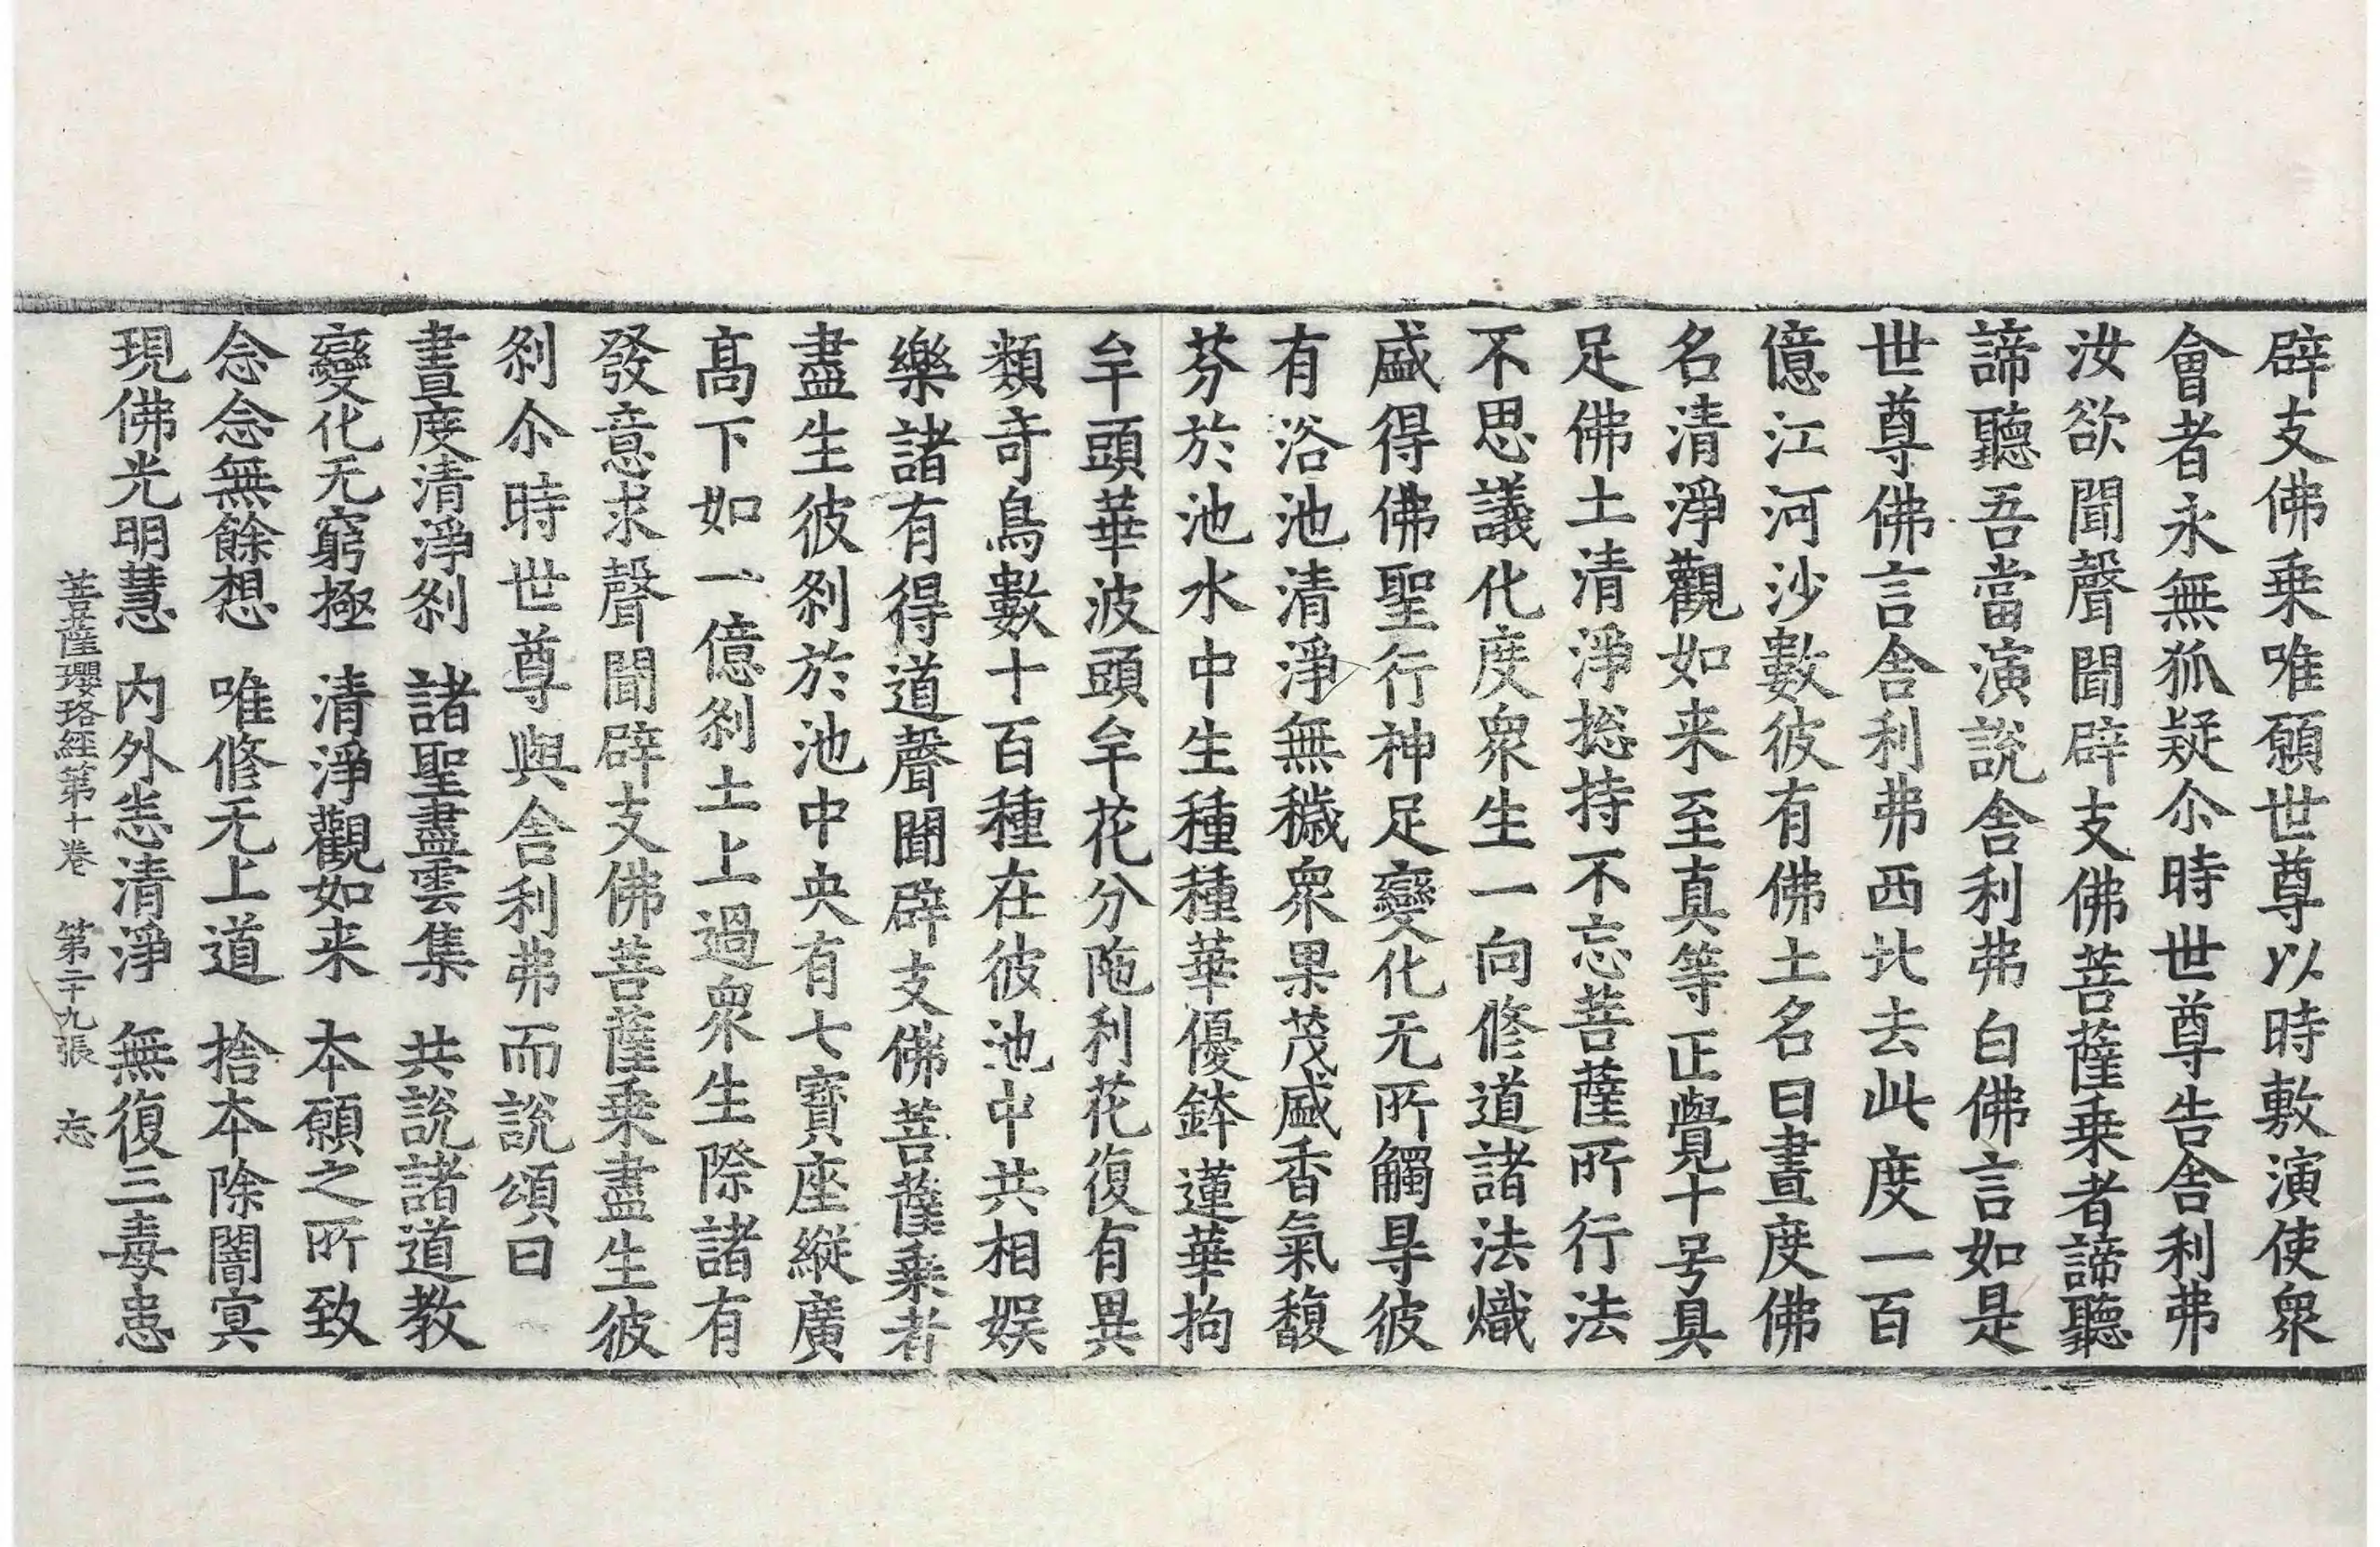 辟支佛乗唯願世尊以時敷演使衆
會者永無狐疑尒時世尊告舎利弗
汝欲聞聲聞辟支佛菩薩乗者諦聽
諦聽吾當演說舎利弗白佛言如是
世尊佛言舎利弗西北去此度一百
億江河沙數彼有佛土名曰晝度佛
名清淨觀如来至真等正覺十号具
足佛土清淨捴持不忘菩薩所行法
不思議化度衆生一向修道諸法熾
盛得佛聖行神足變化无所觸㝵彼
有浴池清淨無穢衆果茂盛香氣馥
芬於池水中生種種華優鉢蓮華拘
牟頭華波頭牟花分陁利花復有異
類竒鳥數十百種在彼池中共相娱
樂諸有得道聲聞辟支佛菩薩乗者
盡生彼刹於池中央有七寶座縱廣
髙下如一億刹土上過衆生際諸有
發意求聲聞辟支佛菩薩乗盡生彼
刹尒時世尊與舎利弗而說頌曰
晝度清淨刹　諸聖盡雲集　共說諸道教
變化无窮極　清淨觀如来　本願之所致
念念無餘想　唯修无上道　捨本除闇㝠
現佛光明慧　内外恚清淨　無復三毒患
菩薩瓔珞經第十卷　第二十九張　忘